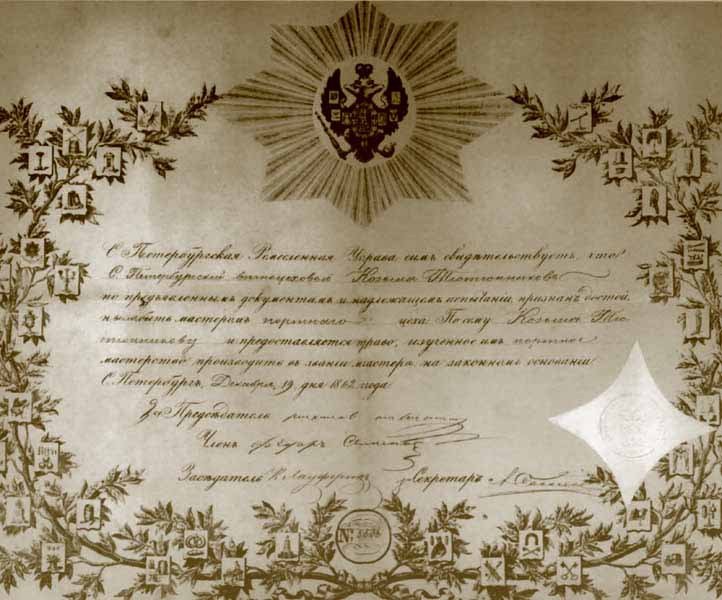 С. Петербургская Ремесленная Управа симъ свидѣтельствуетъ, что
С. Петербургский вѣчноцеховой Козьма
по предъявленнымъ документамъ и надлежащемъ испытаніи, признанъ достой
нымъ быть мастеромъ портнаго цеха. По сему Козьмѣ
и предоставляется право, изученное имъ портное
мастерство производить въ званіи мастера, на законномъ основаніи
С. Петербургъ, Декабря 19 дня 1862 года
За Предсѣдатель
Членъ Федоръ
Засѣдатель Секретарь
№